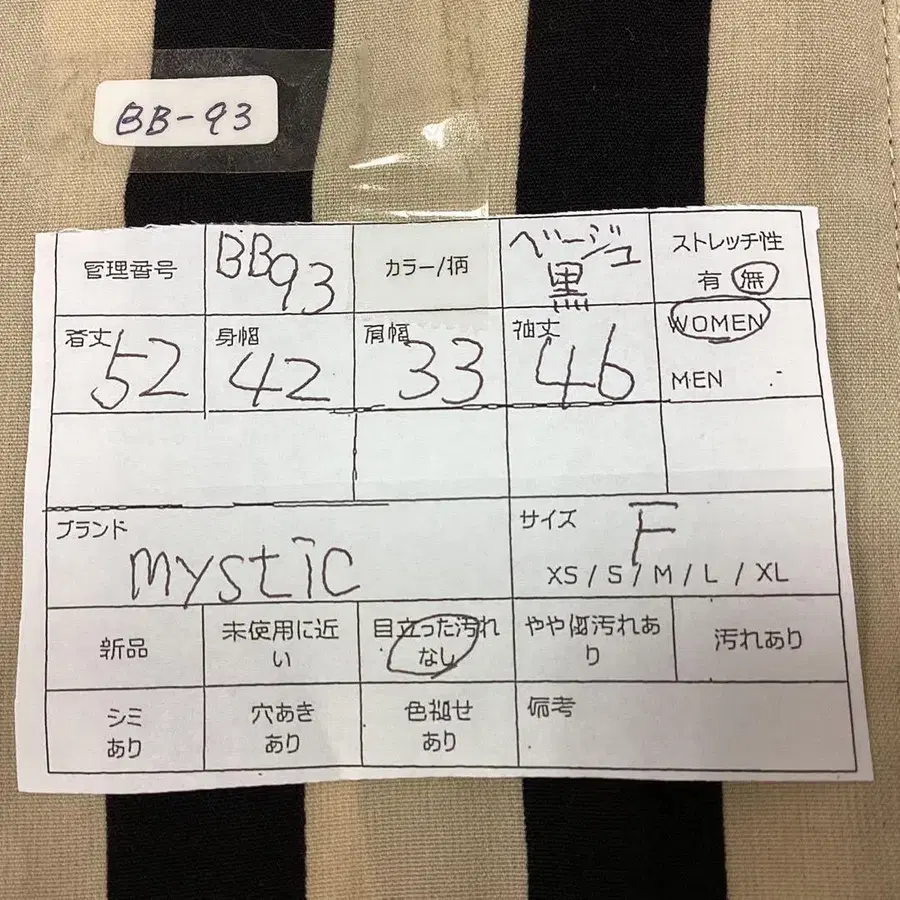 BB-93
管理番号
BB93
カラー/柄
ベージュ
黒
ストレッチ性
有 無
着丈
52
身幅
42
肩幅
33
袖丈
46
WOMEN
MEN
ブランド
mystic
サイズ
F
XS / S / M / L / XL
新品
未使用に近
い
目立った汚れ
なし
やや傷汚れあ
り
汚れあり
シミ
あり
穴あき
あり
色褪せ
あり
備考